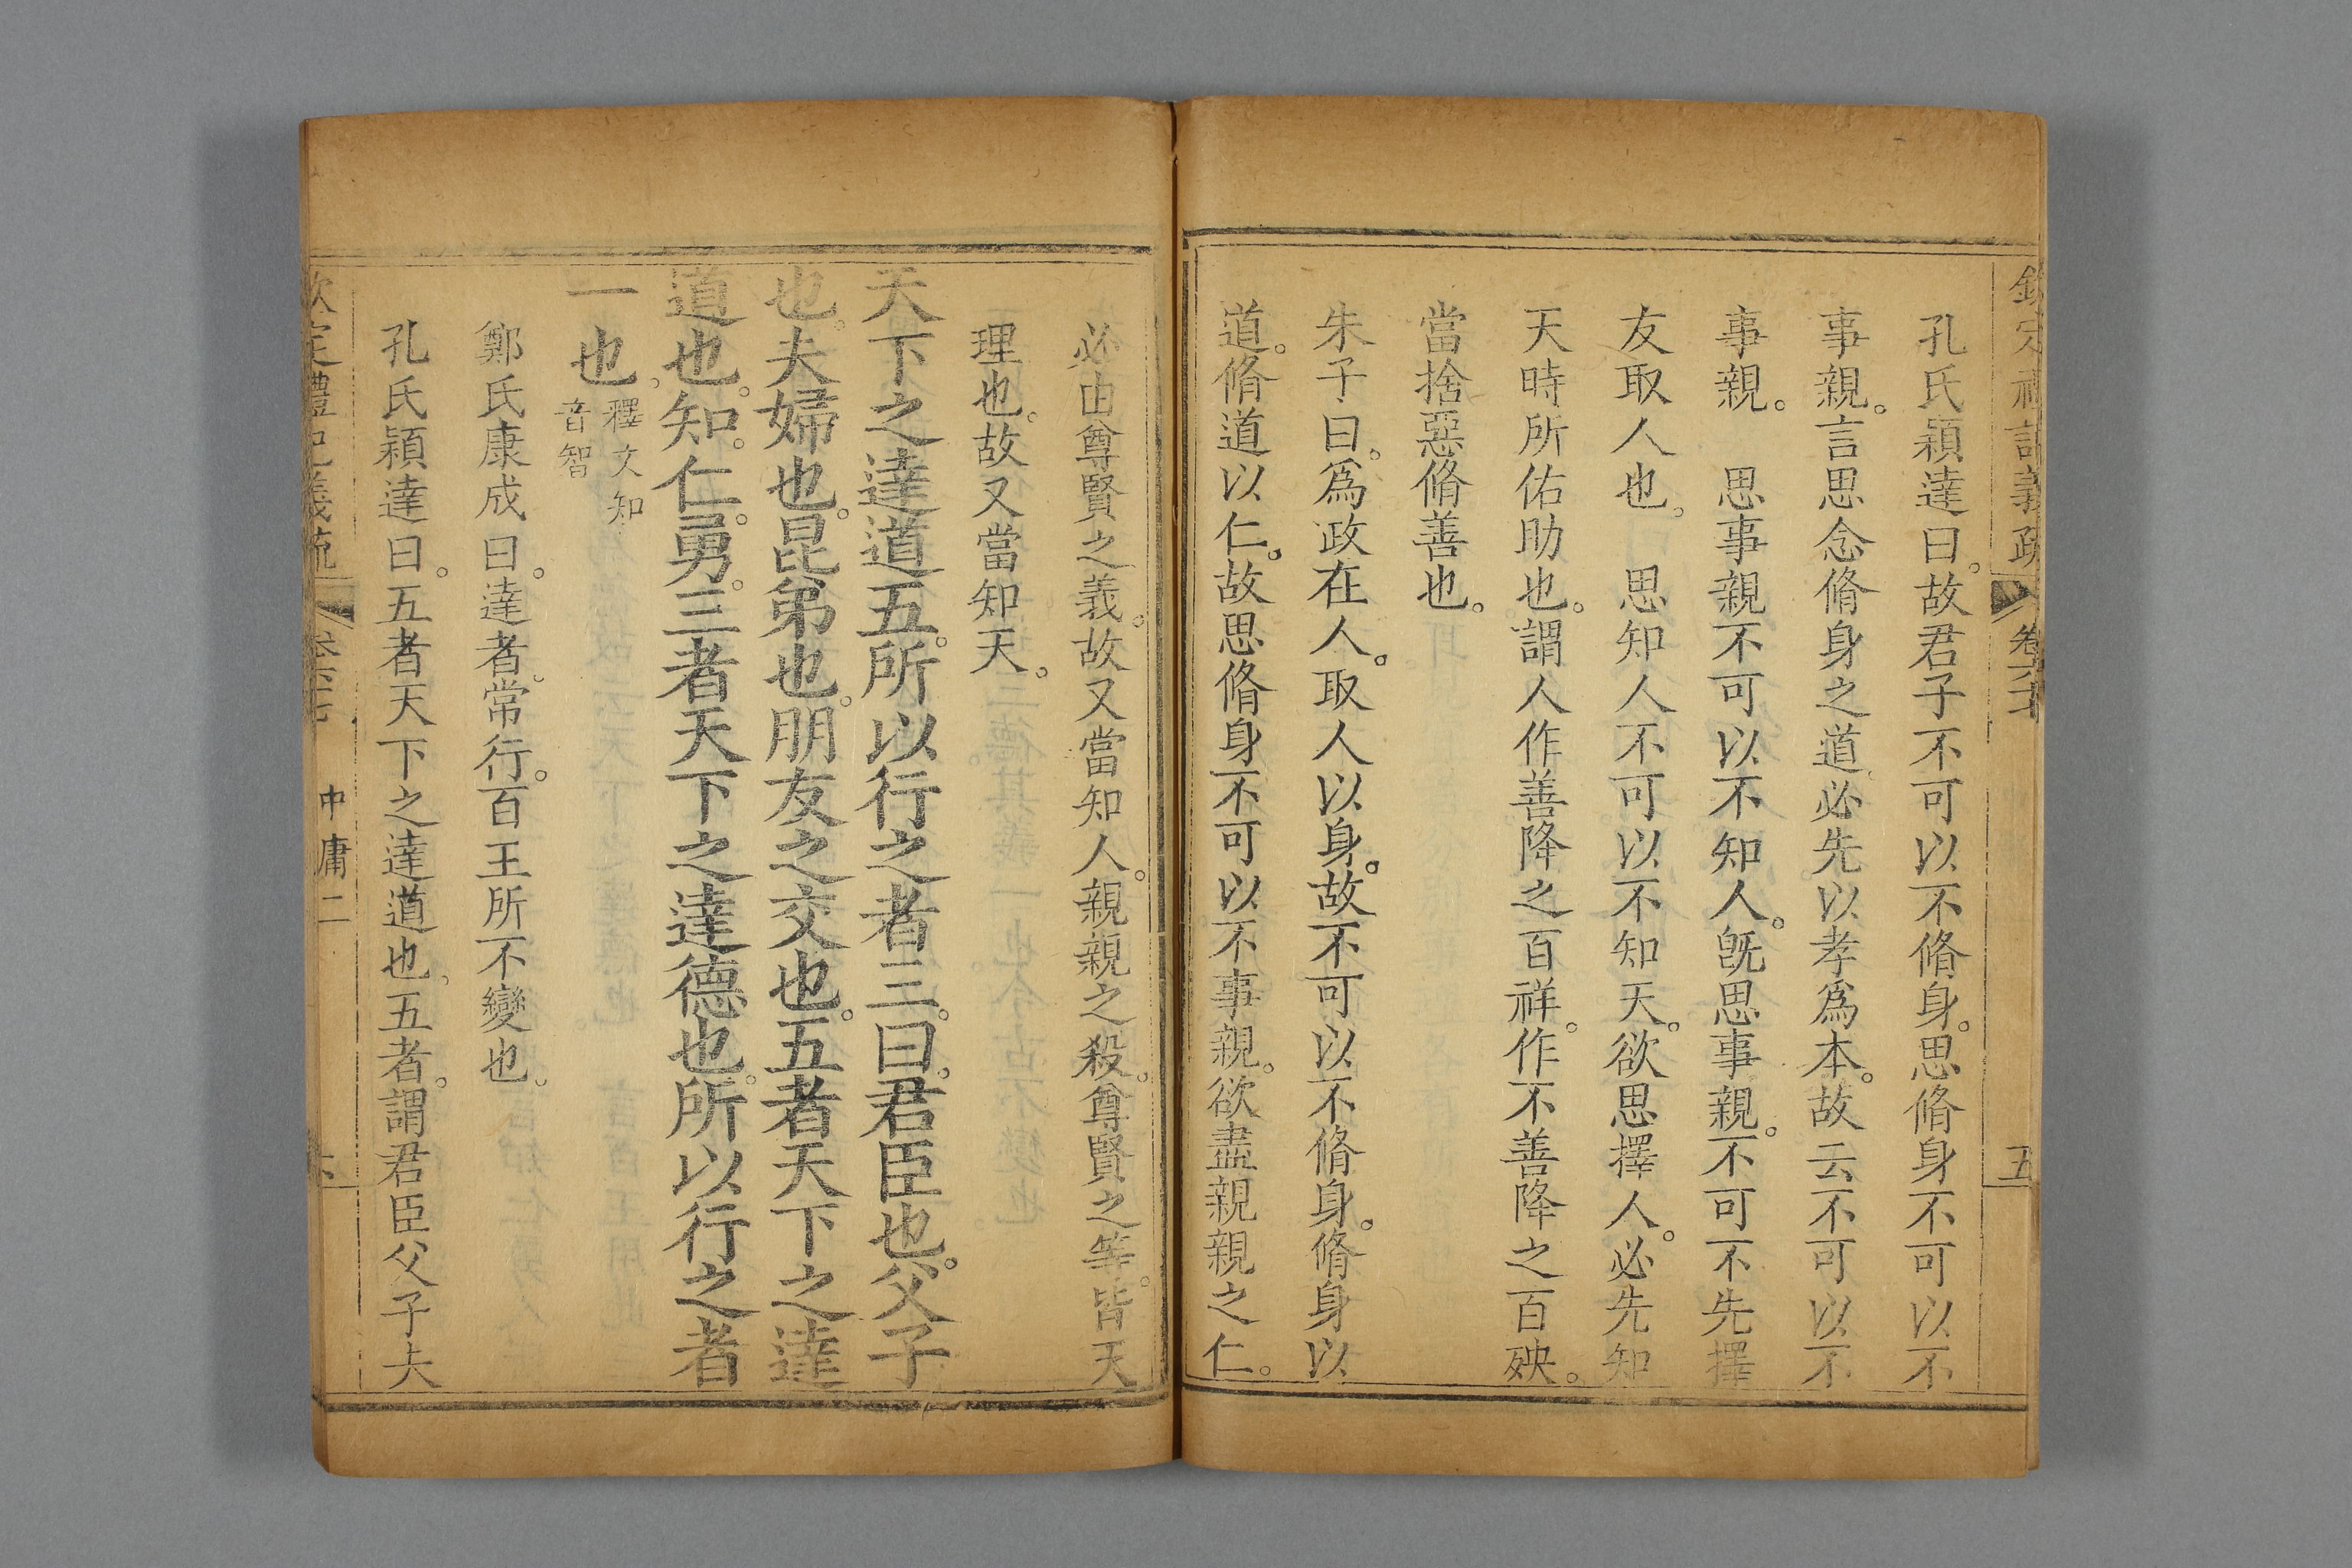 欽定禮記義疏 卷六十 五
孔氏穎達曰。故君子不可以不脩身。思脩身不可以不
事親。言思念脩身之道。必先以孝為本。故云不可以不
事親。 思事親不可以不知人。旣思事親。不可不先擇
友取人也。 思知人不可以不知天。欲思擇人。必先知
天時所佑助也。謂人作善降之百祥。作不善降之百殃。
當捨惡脩善也。
朱子曰。爲政在人。取人以身。故不可以不脩身。脩身以
道。脩道以仁。故思脩身不可以不事親。欲盡親親之仁。
必由尊賢之義。故又當知人。親親之殺。尊賢之等。皆天
理也。故又當知天。
天下之達道五。所以行之者三。曰。君臣也。父子
也。夫婦也。昆弟也。朋友之交也。五者天下之達
道也。知。仁。勇。三者天下之達德也。所以行之者
一也。釋文知
音智
鄭氏康成曰。達者。常行。百王所不變也。
孔氏穎達曰。五者天下之達道也。五者。謂君臣父子夫
欽定禮記義疏 中庸二